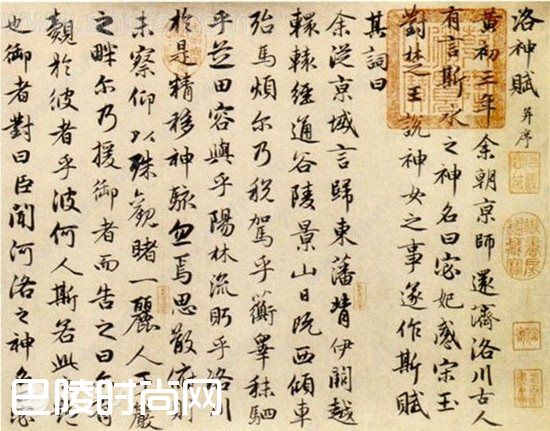 洛神賦 并序
黃初三年余朝京師還濟洛川古人
有言斯水之神名曰宓妃感宋玉
對楚王說神女之事遂作斯賦
其詞曰
余從京域言歸東藩背伊闕越
轘轅經通谷陵景山日既西傾車
殆馬煩尔乃稅駕乎蘅皋秣駟
乎芝田容與乎陽林流眄乎洛川
於是精移神駭忽焉思散俯則
未察仰以殊觀睹一麗人于巖
之畔尔乃援御者而告之曰尔有
覿於彼者乎彼何人斯若此之
也御者對曰臣聞河洛之神名
巴陵时尚网